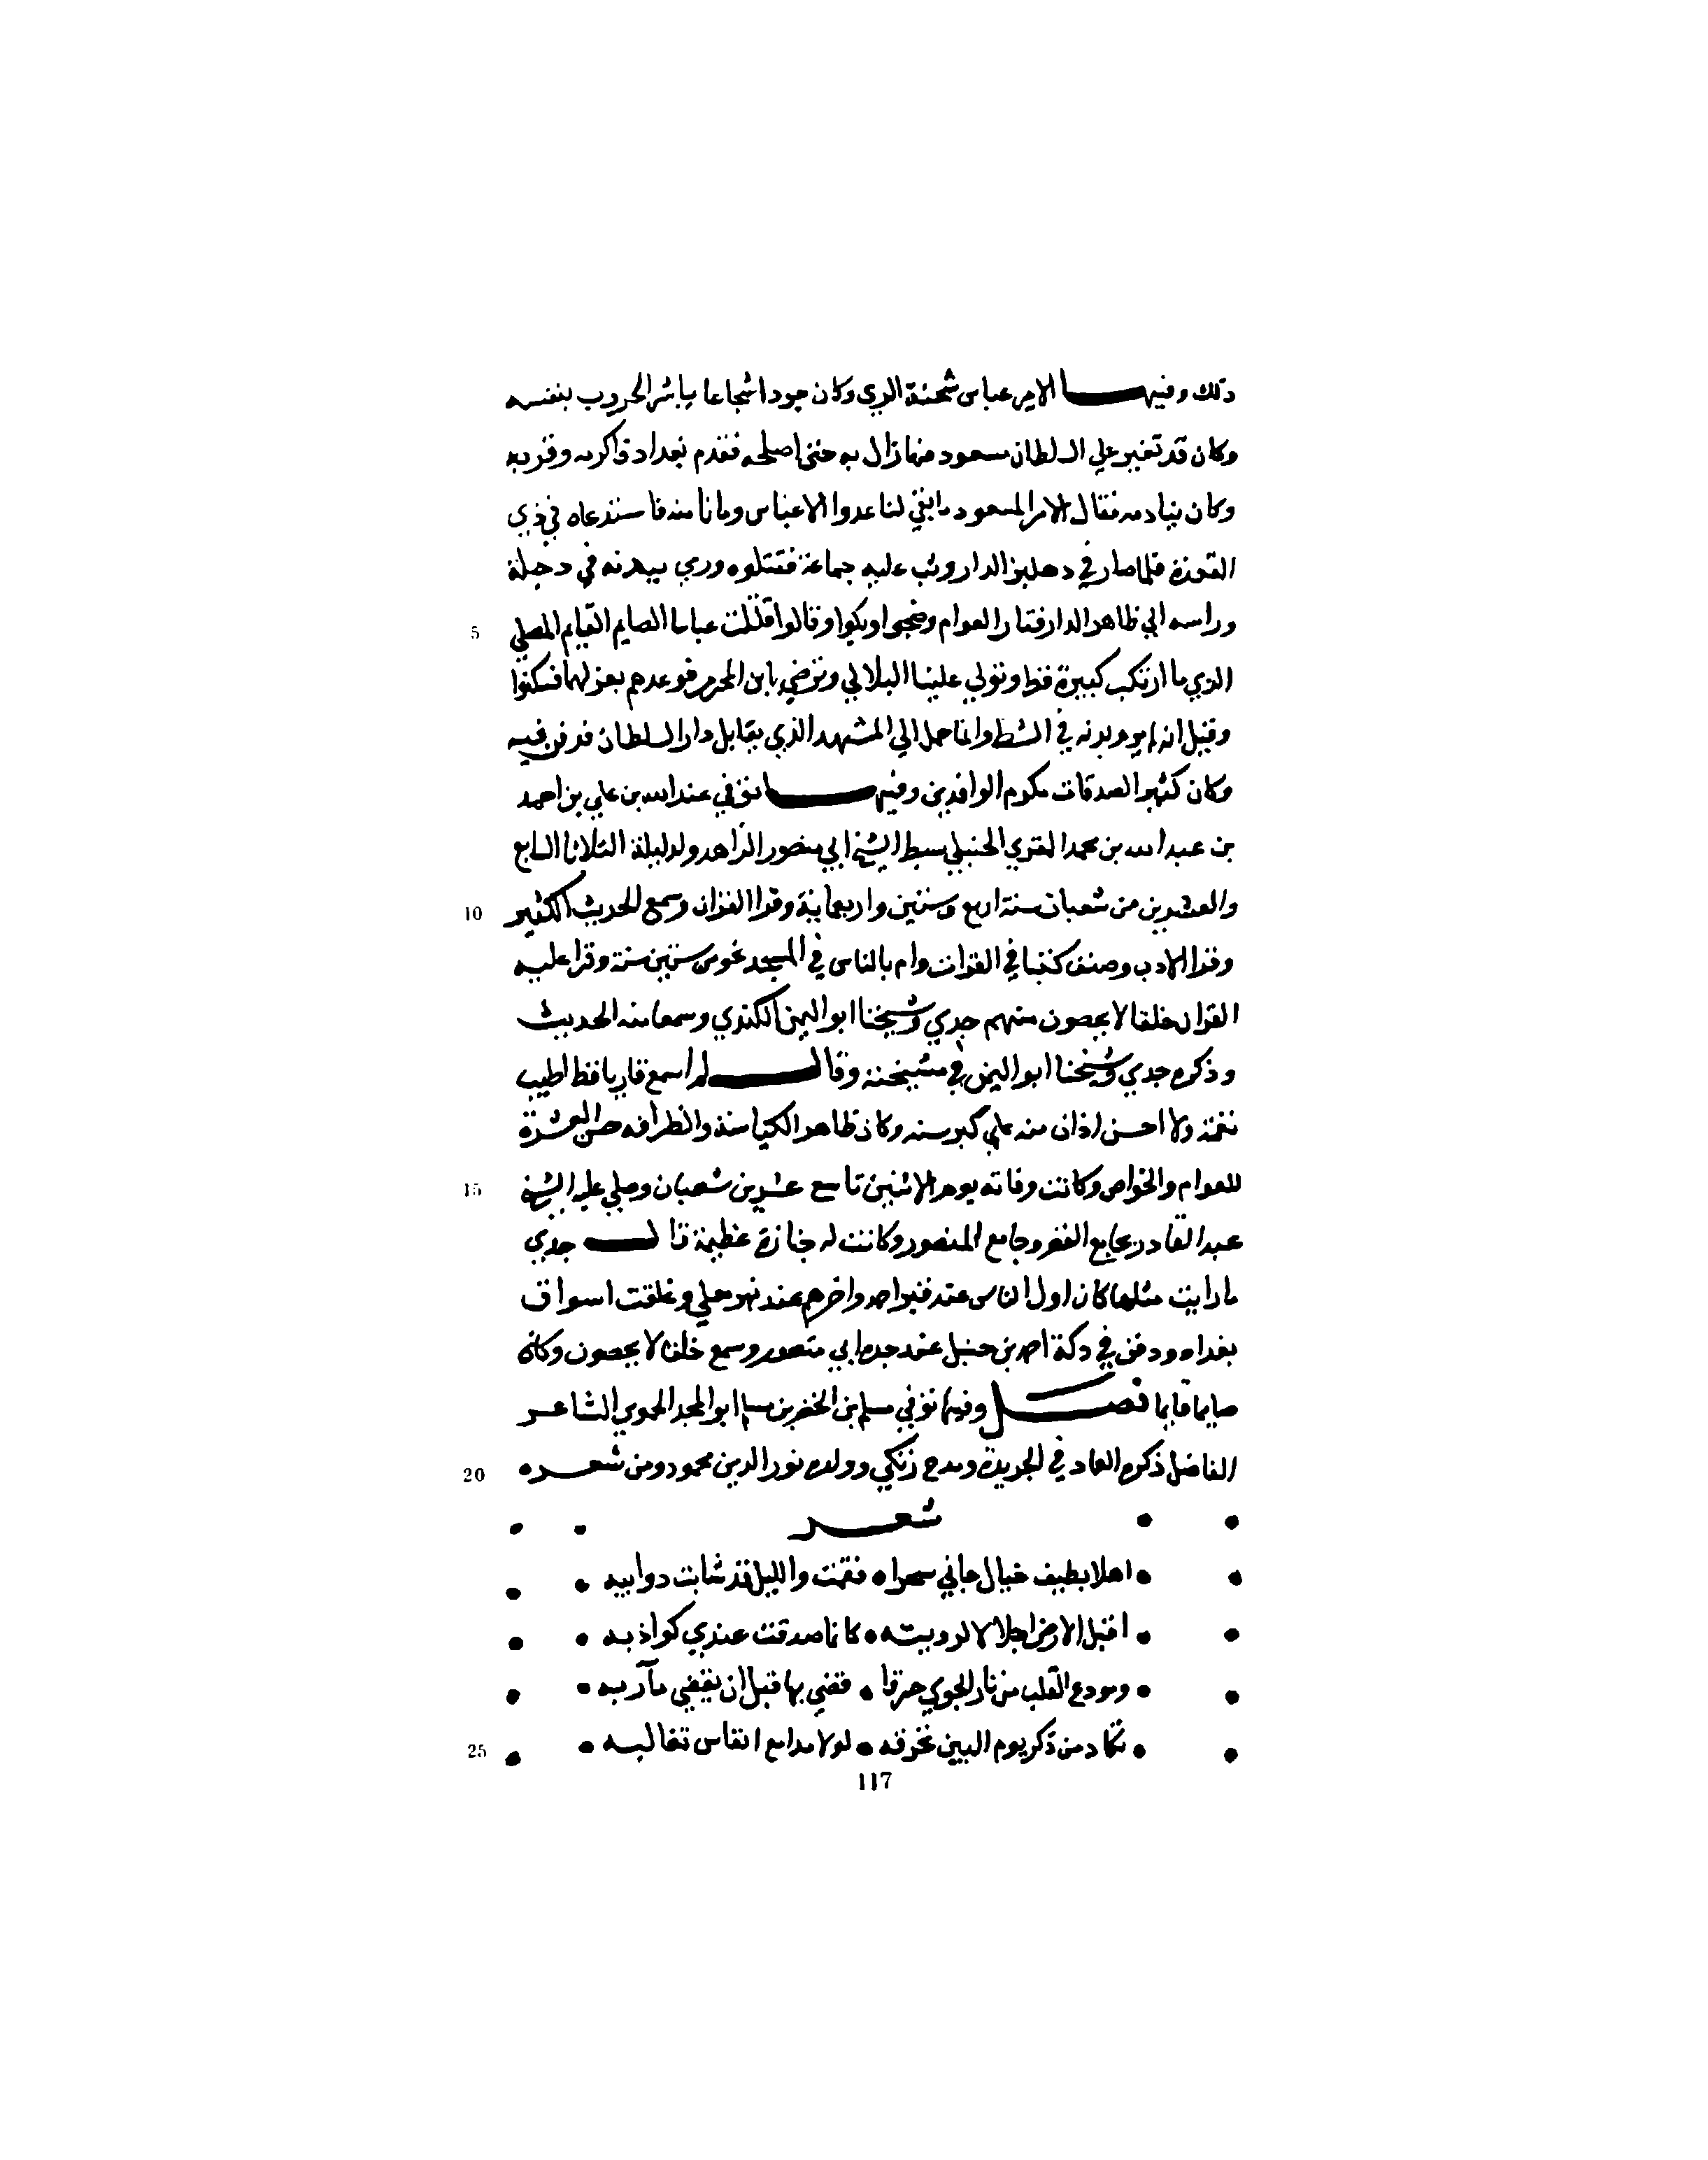 ذلك وفيها الامير عباس شحنة الري وكان جوادا شجاعا يباشر الحروب بنفسه
وكان قد تغير علي السلطان مسعود فما زال به حتي اصلحه فقدم بغداد فاكرمه وقربه
وكان ينادمه فقال الامرا لمسعود ما بقي لنا عدوا الا عباس وما نامنه فاستدعاه في ذي
القعدة فلما صار في دهليز الدار وثب عليه جماعة فقتلوه ورمي ببدنه في دجلة
وراسه الي ظاهر الدار فثار العوام وضجوا وبكوا وقالوا قتلت عباسا الصايم القايم المصلي
الذي ما ارتكب كبيرة قط وتولي علينا البلالي وترضي بابن المحرم فوعدهم بعزلهما فسكتوا
وقيل انه لم يرم بدنه في الشط وانما حمل الي المشهد الذي يقابل دار السلطان فدفن فيه
وكان كثير الصدقات مكرم الوافدين وفيها توفي عبد الله بن علي بن احمد
بن عبد الله بن محمد المقري الحنبلي سبط الشيخ ابي منصور الزاهد ولد ليلة الثلاثا السابع
والعشرين من شعبان سنة اربع وستين واربعماية وقرا القران وسمع الحديث الكثير
وقرا الادب وصنف كتبا في القراات وام بالناس في المسجد نحو من ستين سنة وقرا عليه
القران خلقا لا يحصون منهم جدي وشيخنا ابو اليمن الكندي وسمعا منه الحديث
وذكره جدي وشيخنا ابو اليمن في مشيخته وقال لم اسمع قاريا قط اطيب
نغمة ولا احسن اذان منه علي كبر سنه وكان ظاهر الكياسة والظرافه حسن العشرة
للعوام والخواص وكانت وفاته يوم الاثنين تاسع عشرين شعبان وصلي عليه الشيخ
عبد القادر بجامع القصر وجامع المنصور وكانت له جنازة عظيمة قال جدي
ما رايت مثلها كان اول الناس عند قبر احمد واخرهم عند نهر معلي وغلقت اسواق
بغداد ودفن في دكة احمد بن حنبل عند جده ابي منصور وسمع خلقا لا يحصون وكان
صايما قايما فصل وفيها توفي مسلم بن الخضر بن مسلم ابو المجد الحموي الشاعر
الفاضل ذكره العماد في الخريدة ومدح زنكي وولده نور الدين محمود ومن شعره
شعر
اهلا بطيف خيال جاني سحرا • فقمت والليل قد شابت دوايبه
اقبل الارض اجلالا لرويته • كانما صدقت عندي كواذبه
ومودع القلب من نار الجوي حرقا • قضي بها قبل ان يقضي مآربه
تكاد من ذكر يوم البين تحرقه • لولا مدامع انفاس تغالبه
5
10
15
20
25
117